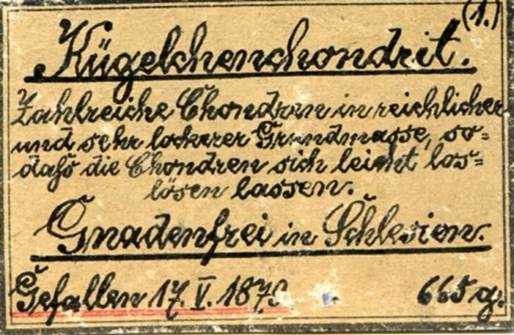 (1.)
Kügelchenchondrit.
Zahlreiche Chondren in reichlicher
und sehr lockerer Grundmasse, so=
daß die Chondren sich leicht los=
lösen lassen.
Gnadenfrei in Schlesien.
Gefallen 17. V. 1879 665 g.